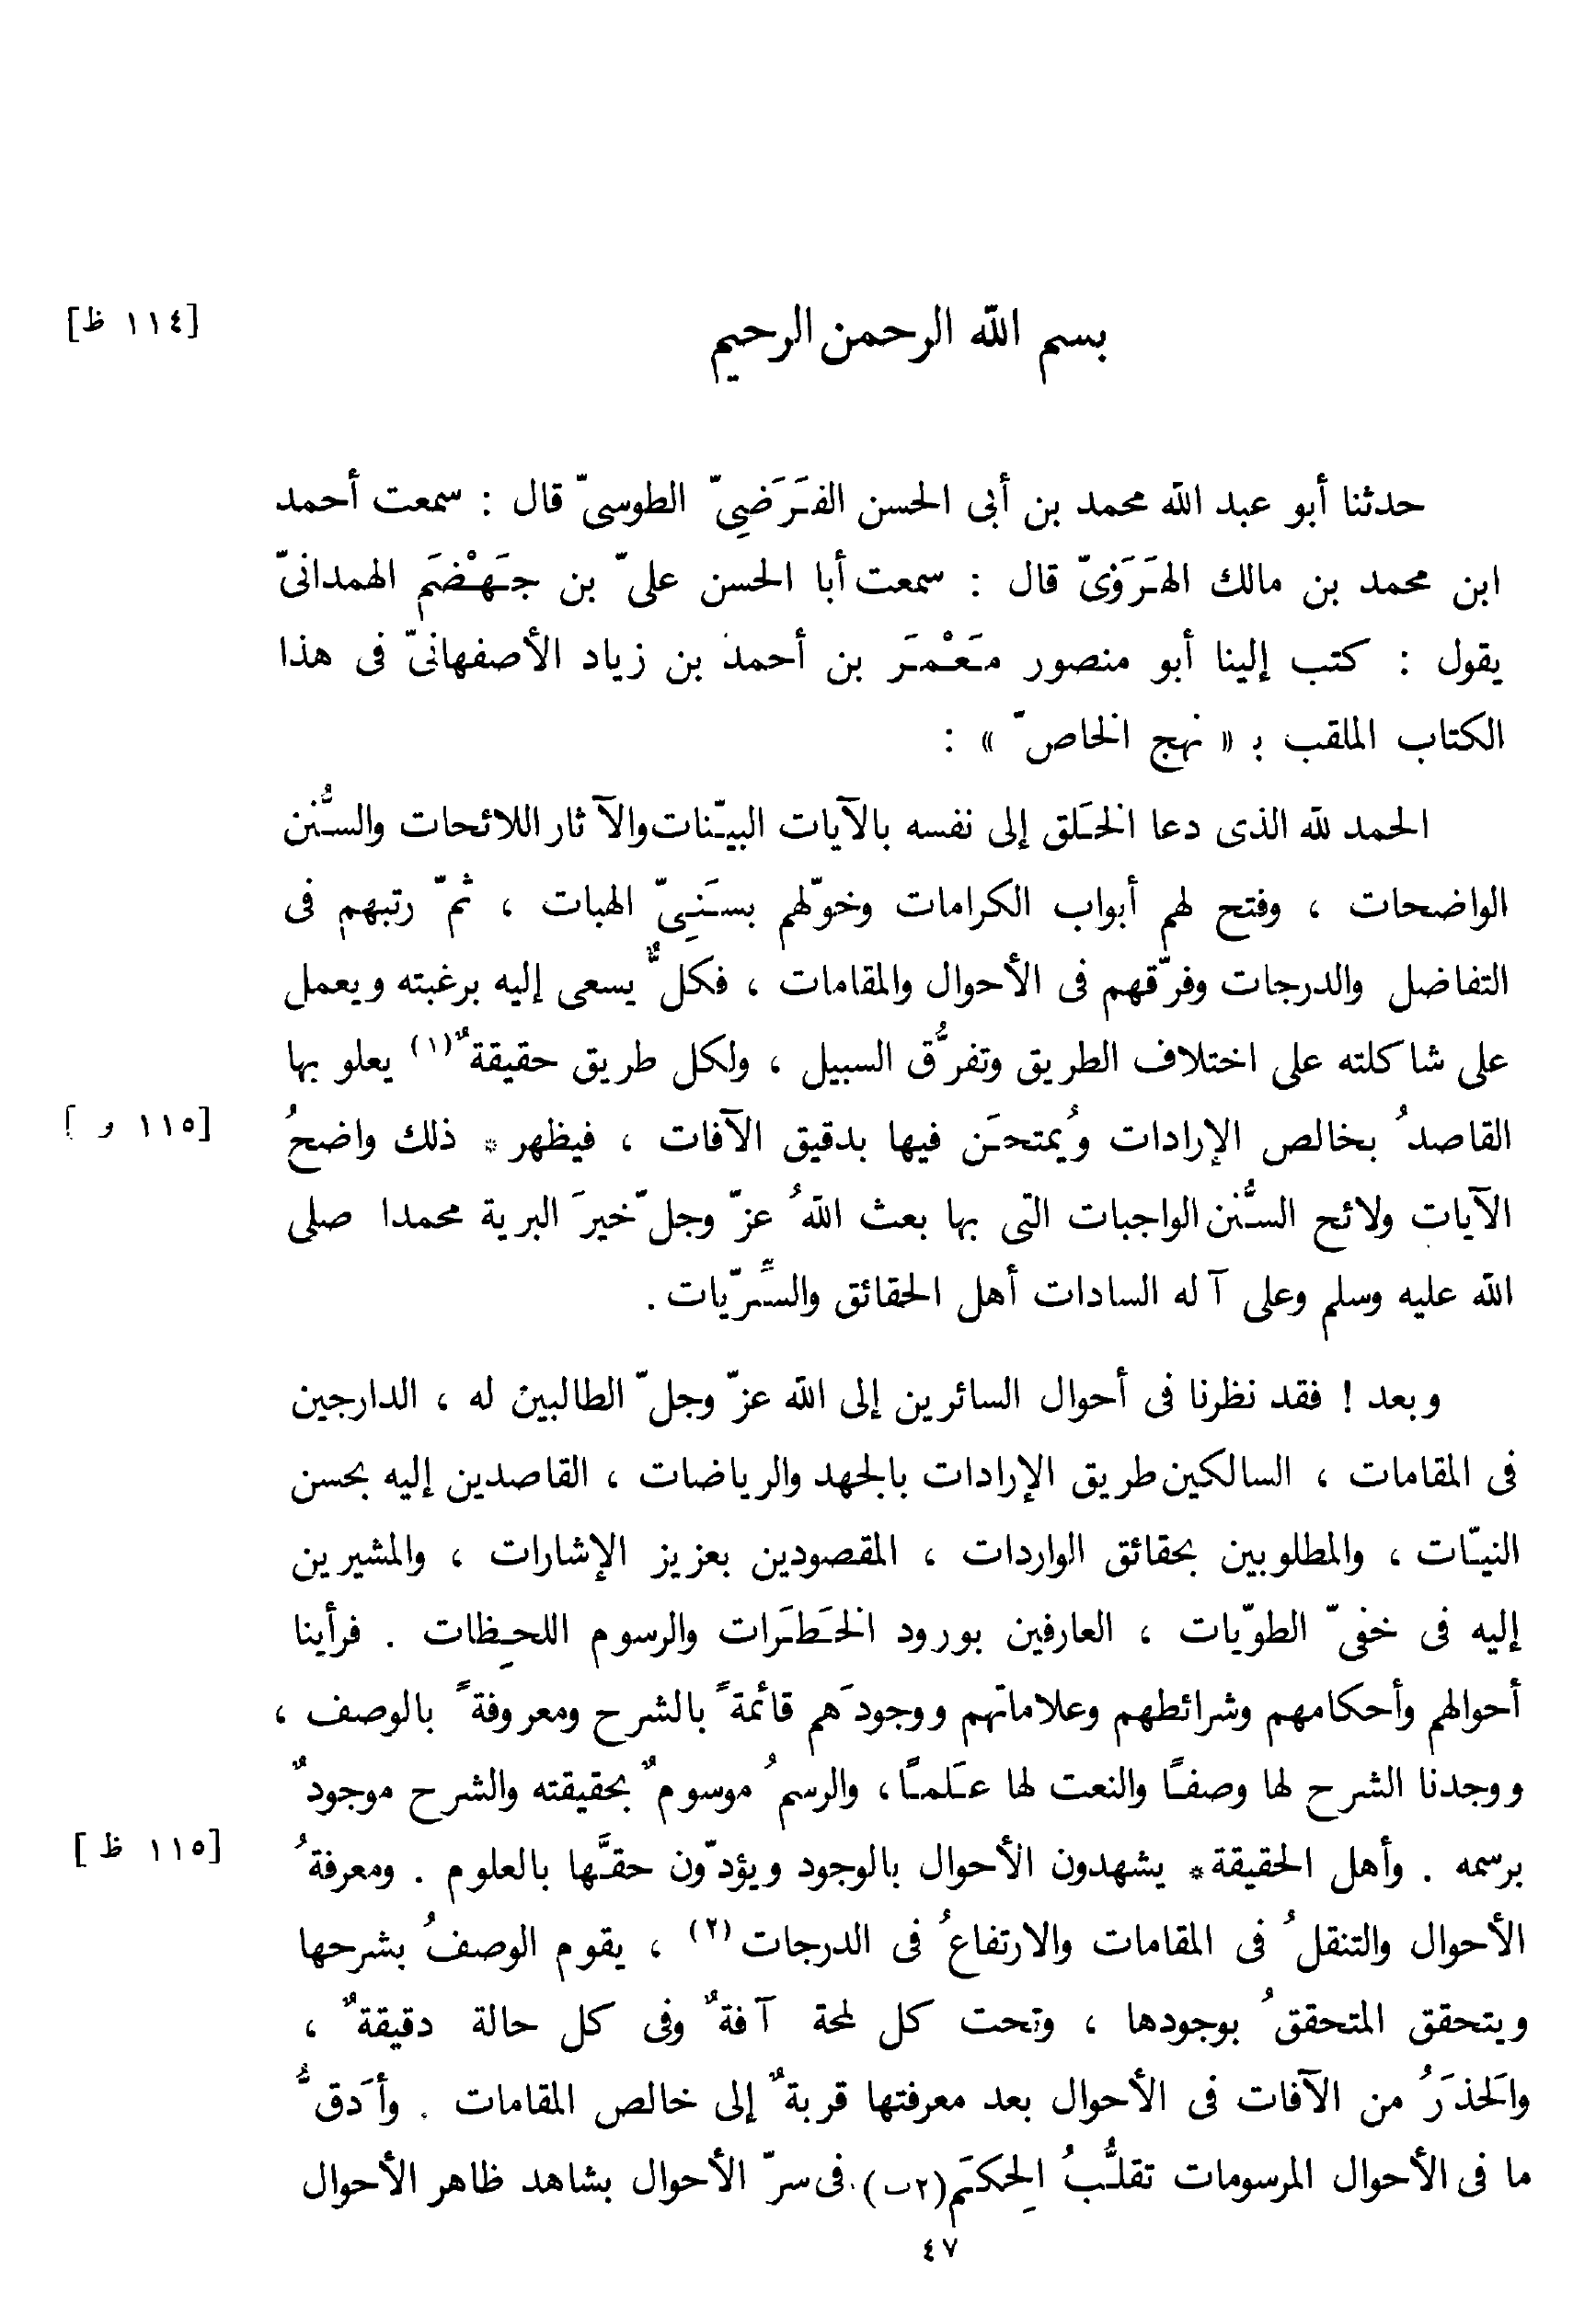 بسم الله الرحمن الرحيم [١١٤ ظ]
حدثنا أبو عبد الله محمد بن أبى الحسن الفَرَضِىّ الطوسىّ قال : سمعت أحمد
ابن محمد بن مالك الهَرَوىّ قال : سمعت أبا الحسن علىّ بن جَهْضَم الهمدانىّ
يقول : كتب إلينا أبو منصور مَعْمَر بن أحمد بن زياد الأصفهانىّ فى هذا
الكتاب الملقب بـ « نهج الخاصّ » :
الحمد لله الذى دعا الخَلق إلى نفسه بالآيات البيّنات والآثار اللائحات والسُّنن
الواضحات ، وفتح لهم أبواب الكرامات وخوّلهم بسَنِىّ الهبات ، ثمّ رتبهم فى
التفاضل والدرجات وفرّقهم فى الأحوال والمقامات ، فكلٌّ يسعى إليه برغبته ويعمل
على شاكلته على اختلاف الطريق وتفرُّق السبيل ، ولكل طريق حقيقةٌ(١) يعلو بها
القاصدُ بخالص الإرادات ويُمتحَن فيها بدقيق الآفات ، فيظهر * ذلك واضحُ [١١٥ و]
الآيات ولائح السُّنن الواجبات التى بها بعث اللهُ عزّ وجلّ خيرَ البرية محمدا صلى
الله عليه وسلم وعلى آله السادات أهل الحقائق والسِّرّيات .
وبعد ! فقد نظرنا فى أحوال السائرين إلى الله عزّ وجلّ الطالبين له ، الدارجين
فى المقامات ، السالكين طريق الإرادات بالجهد والرياضات ، القاصدين إليه بحسن
النيّات ، والمطلوبين بحقائق الواردات ، المقصودين بعزيز الإشارات ، والمشيرين
إليه فى خفىّ الطوّيات ، العارفين بورود الخَطَرات والرسوم اللحِظات . فرأينا
أحوالهم وأحكامهم وشرائطهم وعلاماتهم ووجودَهم قائمةً بالشرح ومعروفةً بالوصف ،
ووجدنا الشرح لها وصفًا والنعت لها عَلمًا ، والرسمُ موسومٌ بحقيقته والشرح موجودٌ
برسمه . وأهل الحقيقة * يشهدون الأحوال بالوجود ويؤدّون حقَّها بالعلوم . ومعرفةُ [١١٥ ظ]
الأحوال والتنقلُ فى المقامات والارتفاعُ فى الدرجات(٢) ، يقوم الوصفُ بشرحها
ويتحقق المتحققُ بوجودها ، وتحت كل لمحة آفةٌ وفى كل حالة دقيقةٌ ،
والحَذَرُ من الآفات فى الأحوال بعد معرفتها قربةٌ إلى خالص المقامات . وأَدقُّ
ما فى الأحوال المرسومات تقلُّبُ الحِكَم(٢ب) فى سرّ الأحوال بشاهد ظاهر الأحوال
٤٧